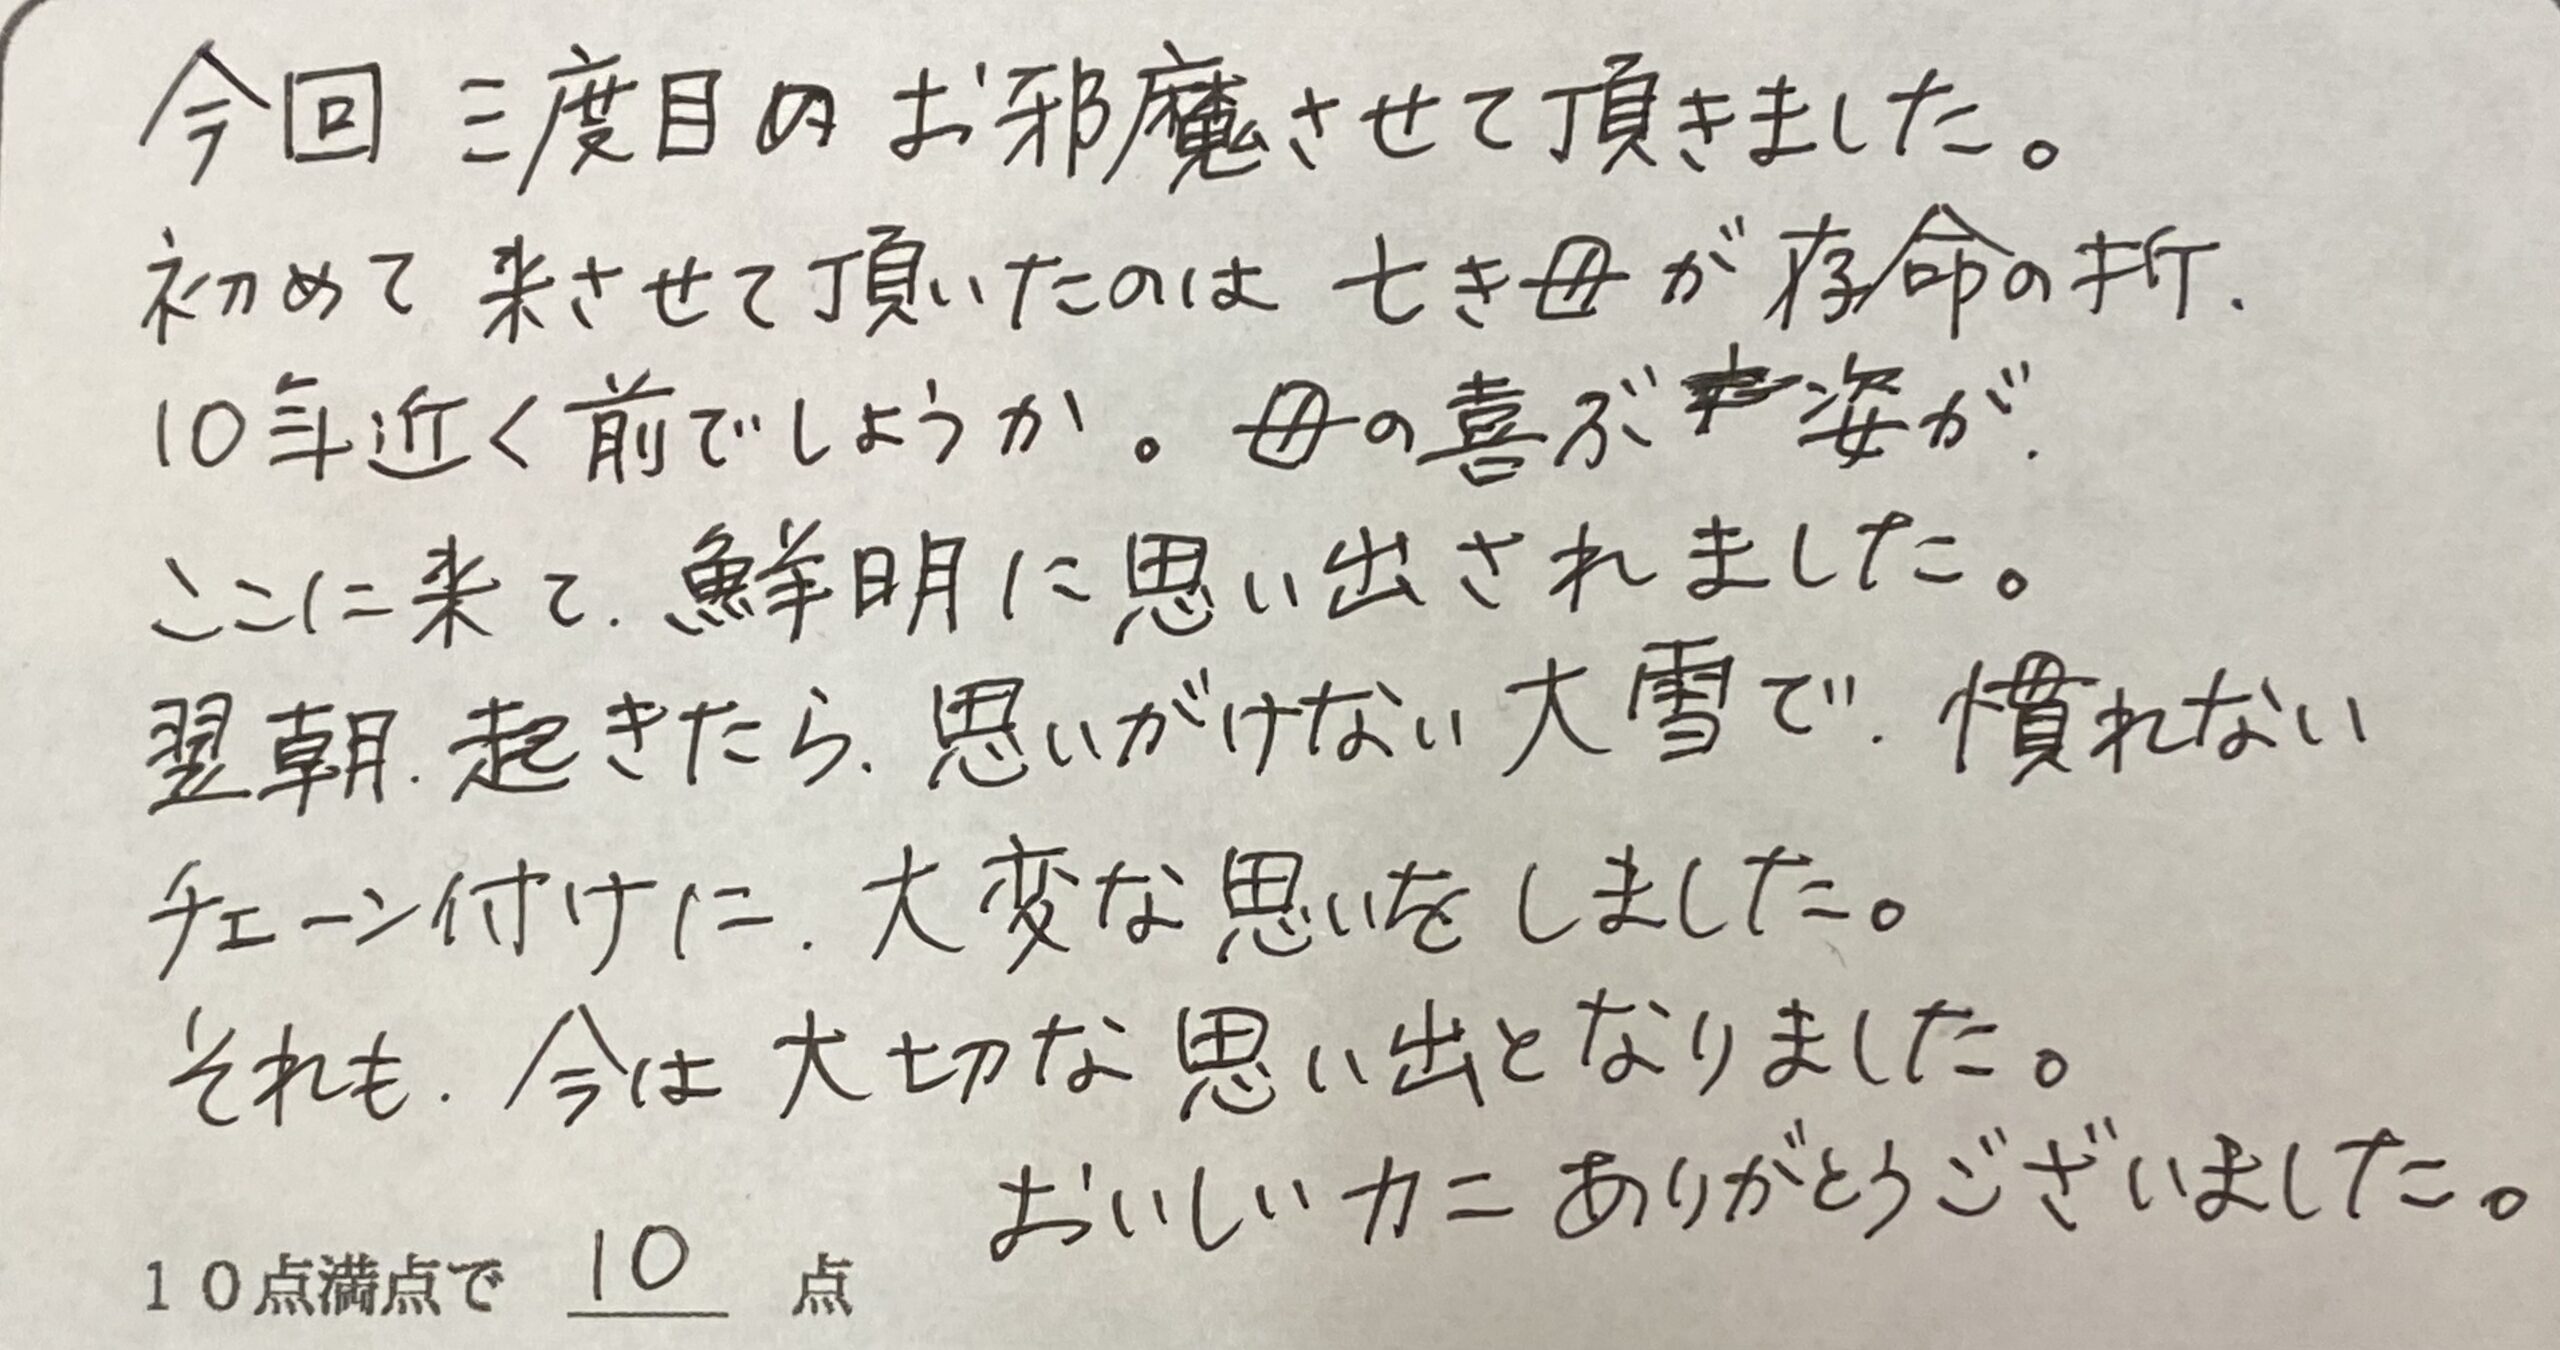 今回 三度目のお邪魔させて頂きました。
初めて来させて頂いたのは 亡き母が存命の折、
10年近く前でしょうか。母の喜ぶ姿が、
ここに来て、鮮明に思い出されました。
翌朝、起きたら、思いがけない大雪で、慣れない
チェーン付けに、大変な思いをしました。
それも、今は大切な思い出となりました。
おいしいカニ ありがとうございました。
10点満点で 10 点